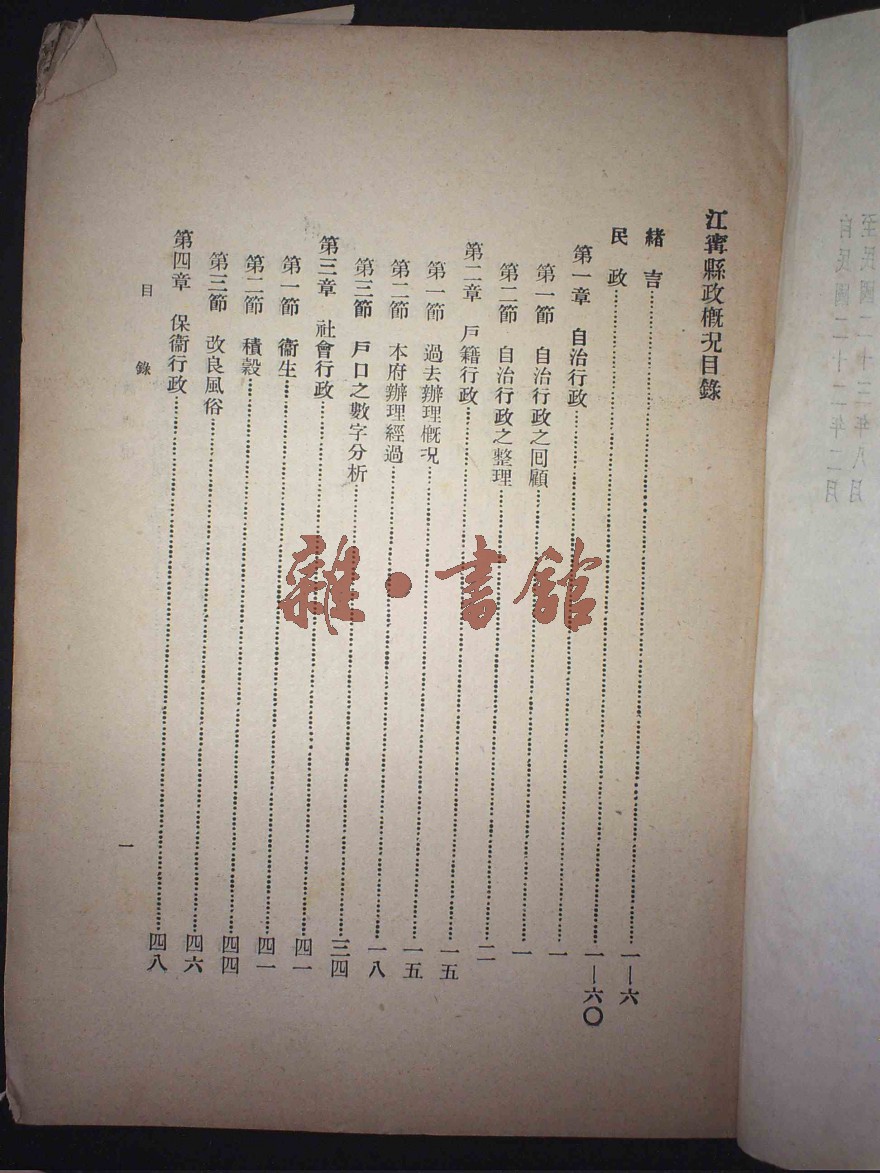 自民國二十二年二月
至民國二十三年八月
江寗縣政概况目錄
緒吉……一—六
民政……一—六〇
第一章 自治行政……一
第一節 自治行政之回顧……一
第二節 自治行政之整理……二
第二章 戶籍行政……一五
第一節 過去辦理概况……一五
第二節 本府辦理經過……一八
第三節 戶口之數字分析……三四
第三章 社會行政……四一
第一節 衞生……四一
第二節 積穀……四四
第三節 改良風俗……四六
第四章 保衞行政……四八
目錄
一
雜·書館